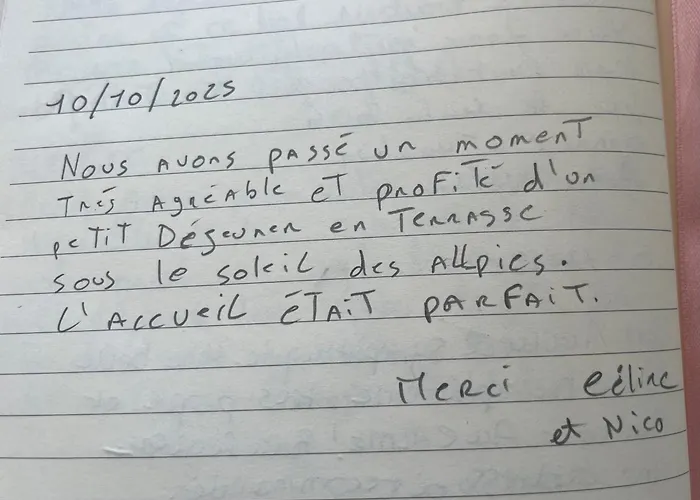 10/10/2025
Nous avons passé un moment
Très Agréable et profité d'un
petit Déjeuner en Terrasse
sous le soleil des Alpies.
L'Accueil était parfait.
Merci Céline
et Nico